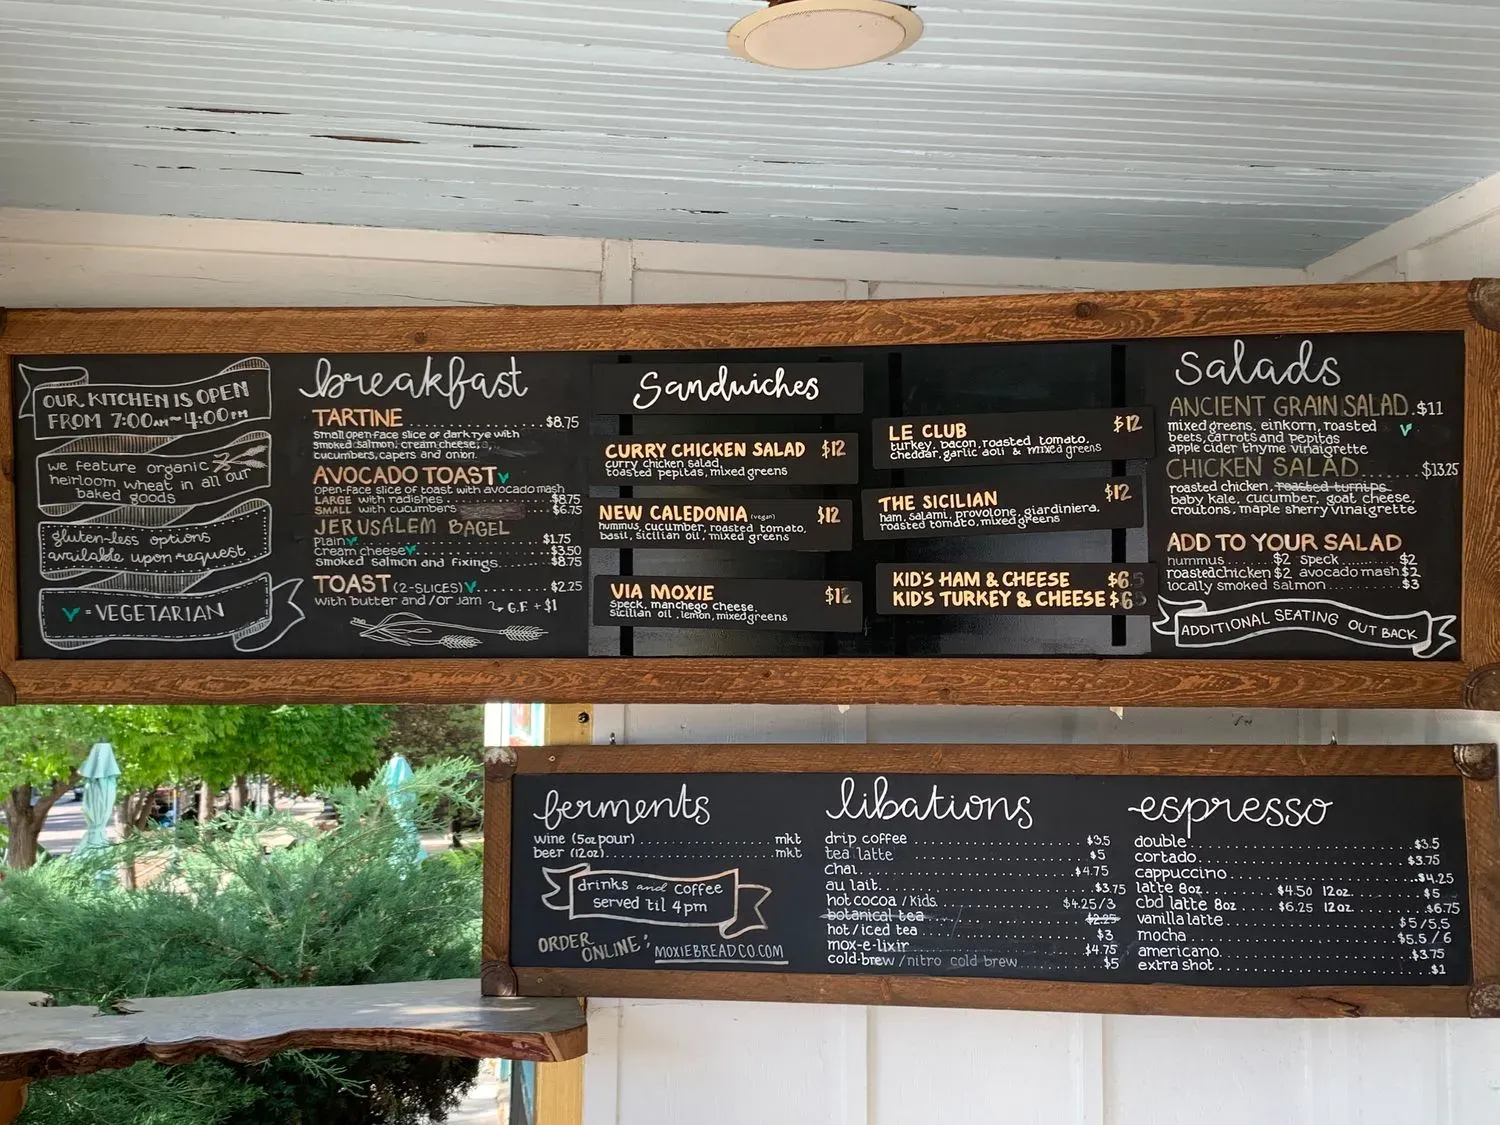 OUR KITCHEN IS OPEN
FROM 7:00AM~4:00PM
we feature organic
heirloom wheat in all our
baked goods
gluten-less options
available upon request
V = VEGETARIAN
breakfast
TARTINE $8.75
small open-face slice of dark rye with
smoked salmon, cream cheese,
cucumbers, capers and onion.
AVOCADO TOAST V
open-face slice of toast with avocado mash
LARGE with radishes $8.75
SMALL with cucumbers $6.75
JERUSALEM BAGEL
Plain V $1.75
cream cheese V $3.50
smoked salmon and fixings $8.75
TOAST (2-SLICES) V $2.25
with butter and /or jam G.F. + $1
Sandwiches
CURRY CHICKEN SALAD $12
curry chicken salad,
toasted pepitas, mixed greens
NEW CALEDONIA (vegan) $12
hummus, cucumber, roasted tomato,
basil, sicilian oil, mixed greens
VIA MOXIE $12
speck, manchego cheese,
sicilian oil, lemon, mixed greens
LE CLUB $12
turkey, bacon, roasted tomato,
cheddar, garlic aoli & mixed greens
THE SICILIAN $12
ham, salami, provolone, giardiniera,
roasted tomato, mixed greens
KID'S HAM & CHEESE $6
KID'S TURKEY & CHEESE $6
salads
ANCIENT GRAIN SALAD $11
mixed greens, einkorn, roasted V
beets, carrots and pepitas
apple cider thyme vinaigrette
CHICKEN SALAD $13.25
roasted chicken, roasted turnips
baby kale, cucumber, goat cheese,
croutons, maple sherry vinaigrette
ADD TO YOUR SALAD
hummus $2 speck $2
roasted chicken $2 avocado mash $2
locally smoked salmon $3
ADDITIONAL SEATING OUT BACK
ferments
wine (5oz pour) mkt
beer (12oz) mkt
drinks and coffee
served til 4pm
ORDER
ONLINE:
MOXIEBREADCO.COM
libations
drip coffee $3.5
tea latte $5
chai $4.75
au lait $3.75
hot cocoa / kids $4.25/3
botanical tea $2.25
hot/iced tea $3
mox-e-lixir $4.75
cold-brew/nitro cold brew $5
espresso
double $3.5
cortado $3.75
cappuccino $4.25
latte 8oz $4.50 12oz $5
cbd latte 8oz $6.25 12oz $6.75
vanilla latte $5/5.5
mocha $5.5/6
americano $3.75
extra shot $1